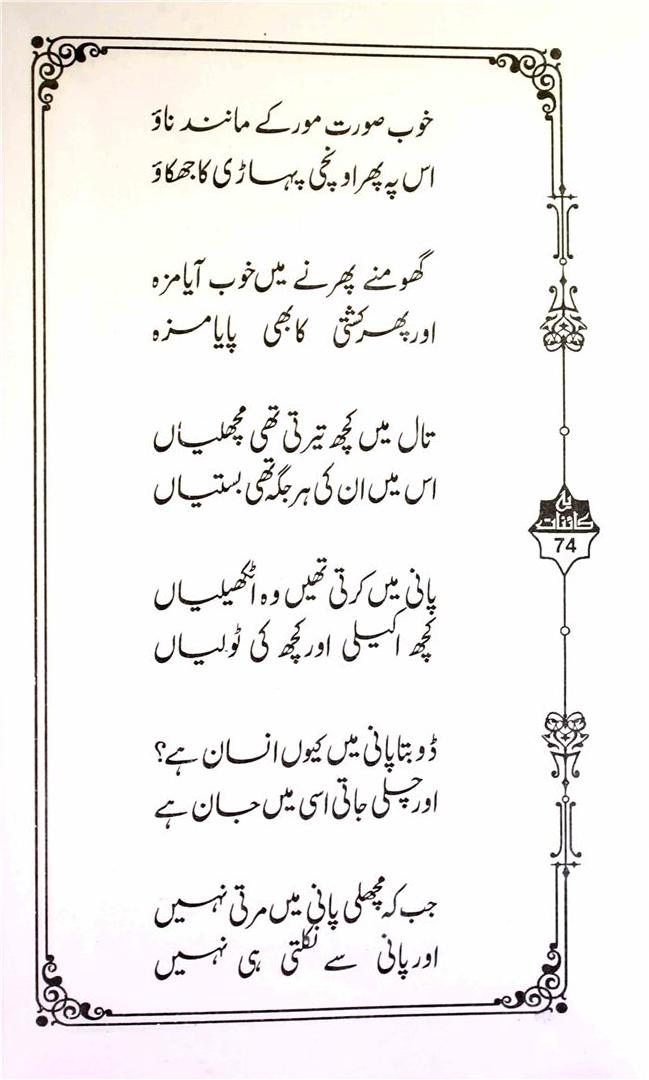 خوب صورت مور کے مانند ناؤ
اس پہ پھر اونچی پہاڑی کا جھکاؤ
گھومنے پھرنے میں خوب آیا مزہ
اور پھر کشتی کا بھی پایا مزہ
تال میں کچھ تیرتی تھی مچھلیاں
اس میں ان کی ہر جگہ تھی بستیاں
پانی میں کرتی تھیں وہ اٹکھیلیاں
کچھ اکیلی اور کچھ کی ٹولیاں
ڈوبتا پانی میں کیوں انسان ہے؟
اور چلی جاتی اسی میں جان ہے
جب کہ مچھلی پانی میں مرتی نہیں
اور پانی سے نکلتی ہی نہیں
یہ
کائنات
74